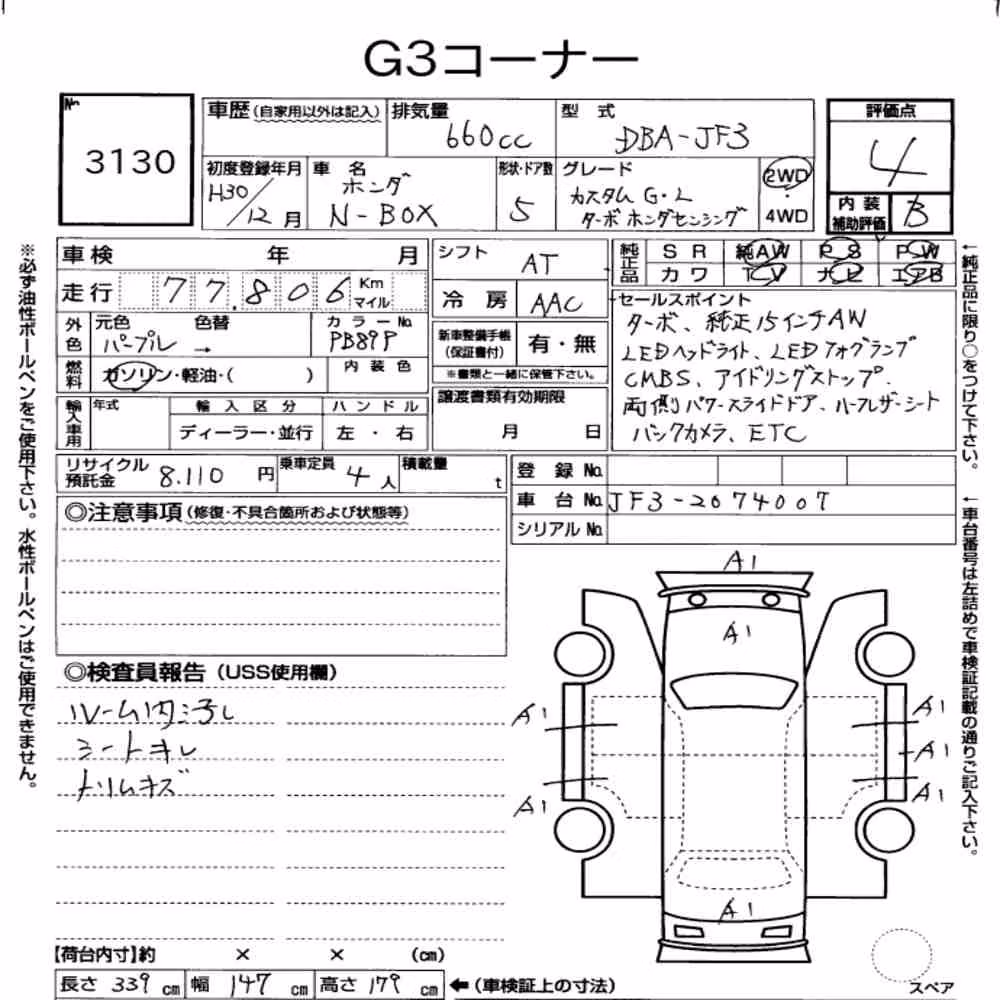 G3コーナー
No.
3130
車歴 (自家用以外は記入)
排気量
660cc
型 式
DBA-JF3
評価点
4
内装補助評価
B
初度登録年月
H30/12月
車 名
ホンダ
N-BOX
形状・ドア数
5
グレード
カスタム G・L
ターボ ホンダセンシング
2WD
4WD
車検 年 月
走行 77,806 Km マイル
シフト AT
冷房 AAC
純正品
SR 純AW PS PW
カワ TV ナビ エアB
外色
元色 色替
パープル →
カラーNo.
PB89P
新車整備手帳
(保証書付)
有・無
※書類と一緒に保管下さい。
燃料
ガソリン・軽油・( )
内装色
セールスポイント
ターボ、純正15インチAW
LEDヘッドライト、LEDフォグランプ
CMBS、アイドリングストップ.
両側パワースライドドア、ハーフレザーシート
バックカメラ、ETC
輸入車用
年式
輸入区分
ディーラー・並行
ハンドル
左・右
譲渡書類有効期限
月 日
リサイクル預託金 8,110 円
乗車定員 4 人
積載量 t
登録No.
車台No. JF3-2074007
シリアルNo.
◎注意事項 (修復・不具合箇所および状態等)
◎検査員報告 (USS使用欄)
ルーム内汚れ
シートキレ
トリムキズ
A1
A1
A1
A1
A1
A1
A1
A1
スペア
【荷台内寸】約 × × (cm)
長さ 339 cm 幅 147 cm 高さ 179 cm ←(車検証上の寸法)
※必ず油性ボールペンをご使用下さい。水性ボールペンはご使用できません。
←純正品に限り○をつけて下さい。
←車台番号は左詰めで車検証記載の通りご記入下さい。